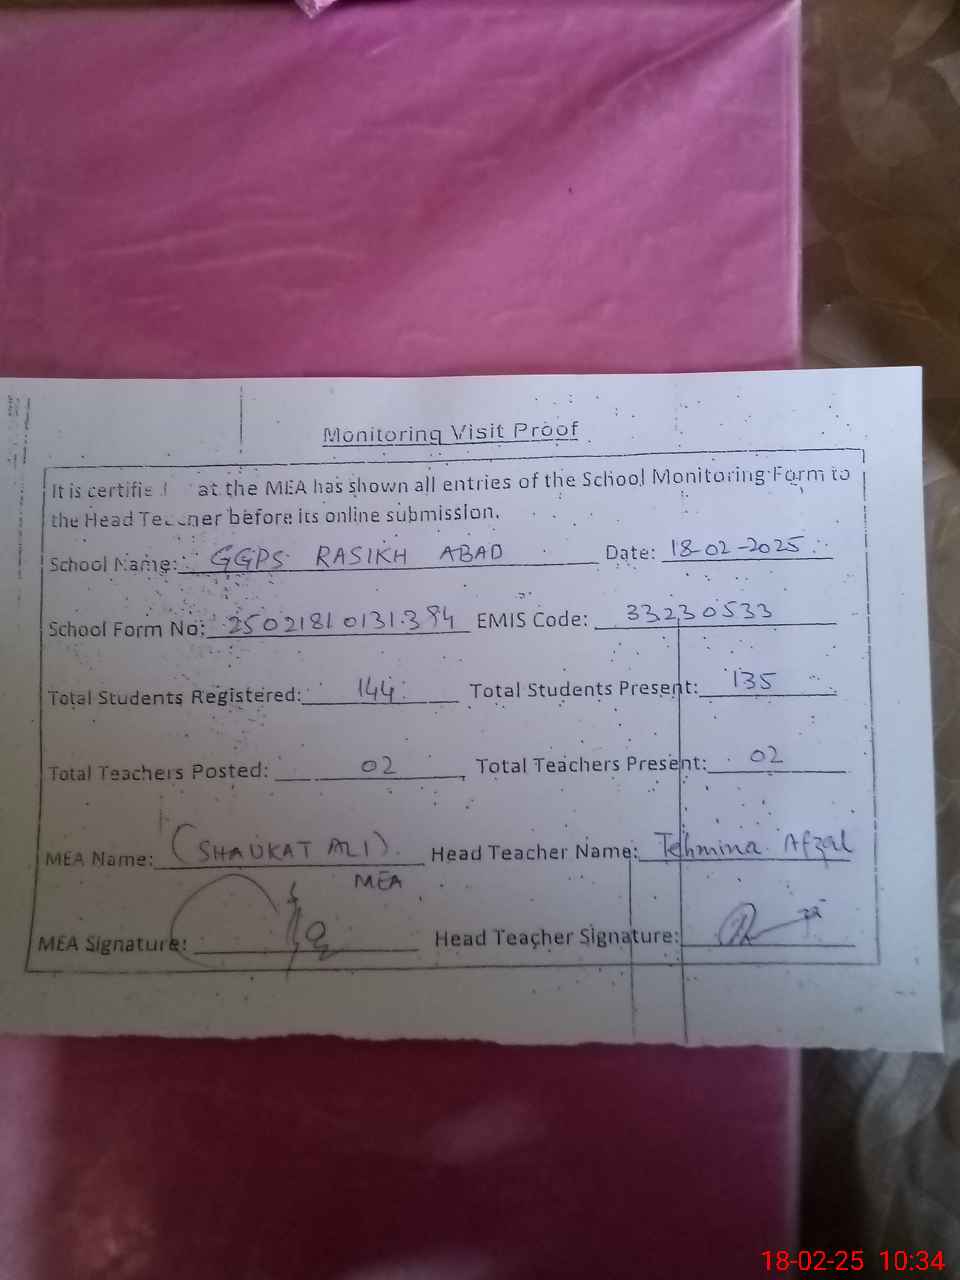 Monitoring Visit Proof
It is certifie at the MEA has shown all entries of the School Monitoring Form to
the Head Teacner before its online submission.
School Name: GGPS RASIKH ABAD Date: 18-02-2025
School Form No: 25021810131384 EMIS Code: 33230533
Total Students Registered: 144 Total Students Present: 135
Total Teachers Posted: 02 Total Teachers Present: 02
MEA Name: (SHAUKAT ALI) Head Teacher Name: Tehmina Afzal
MEA
MEA Signature: Head Teacher Signature:
18-02-25 10:34